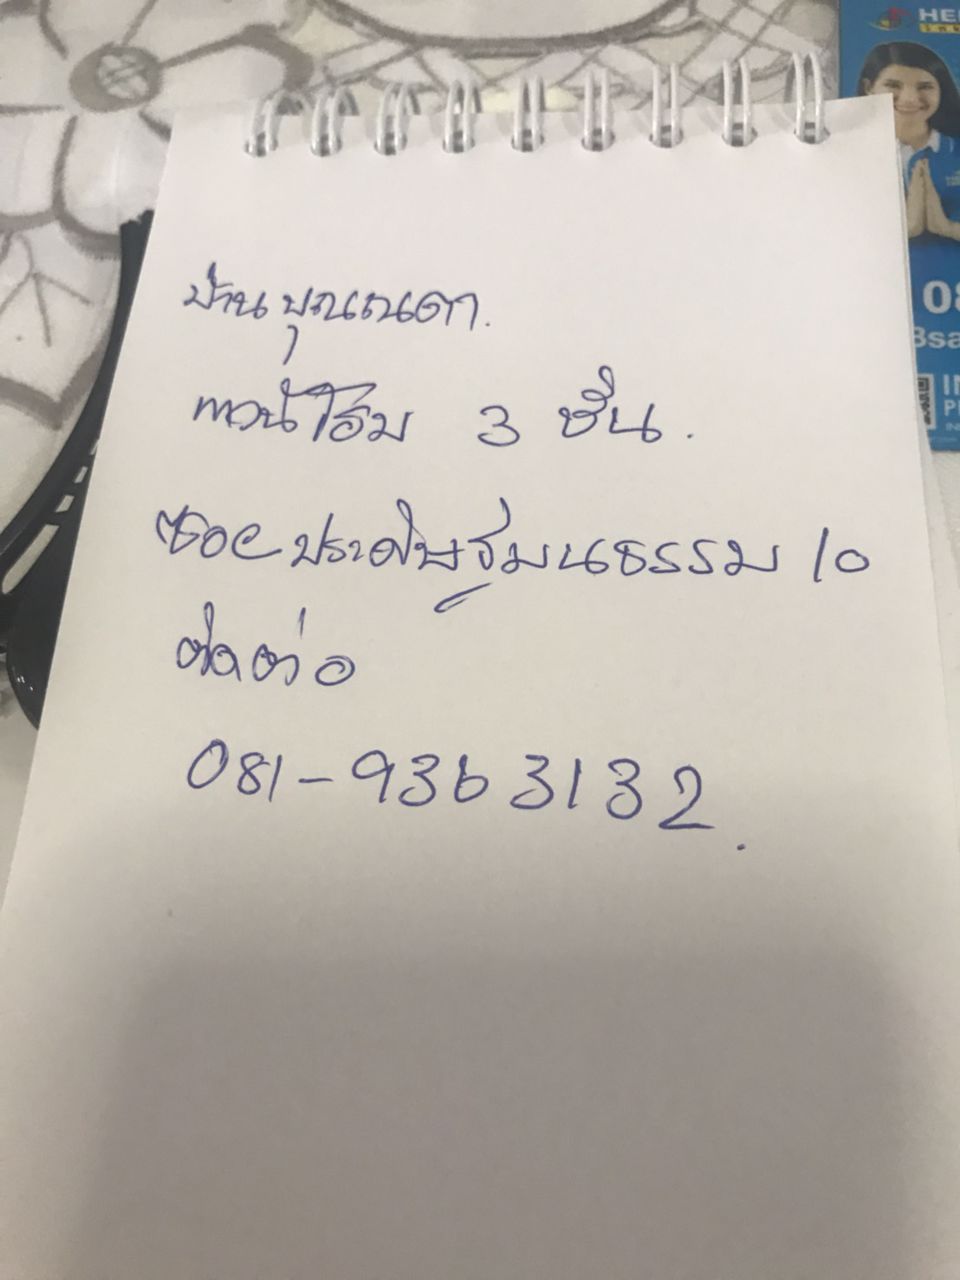 บ้านบุณณดา.
ทาวน์โฮม 3 ชั้น.
ซอยประดิษฐ์มนูธรรม 10
ติดต่อ
081-9363132.
HE
08
Bsa
IN
P
IN